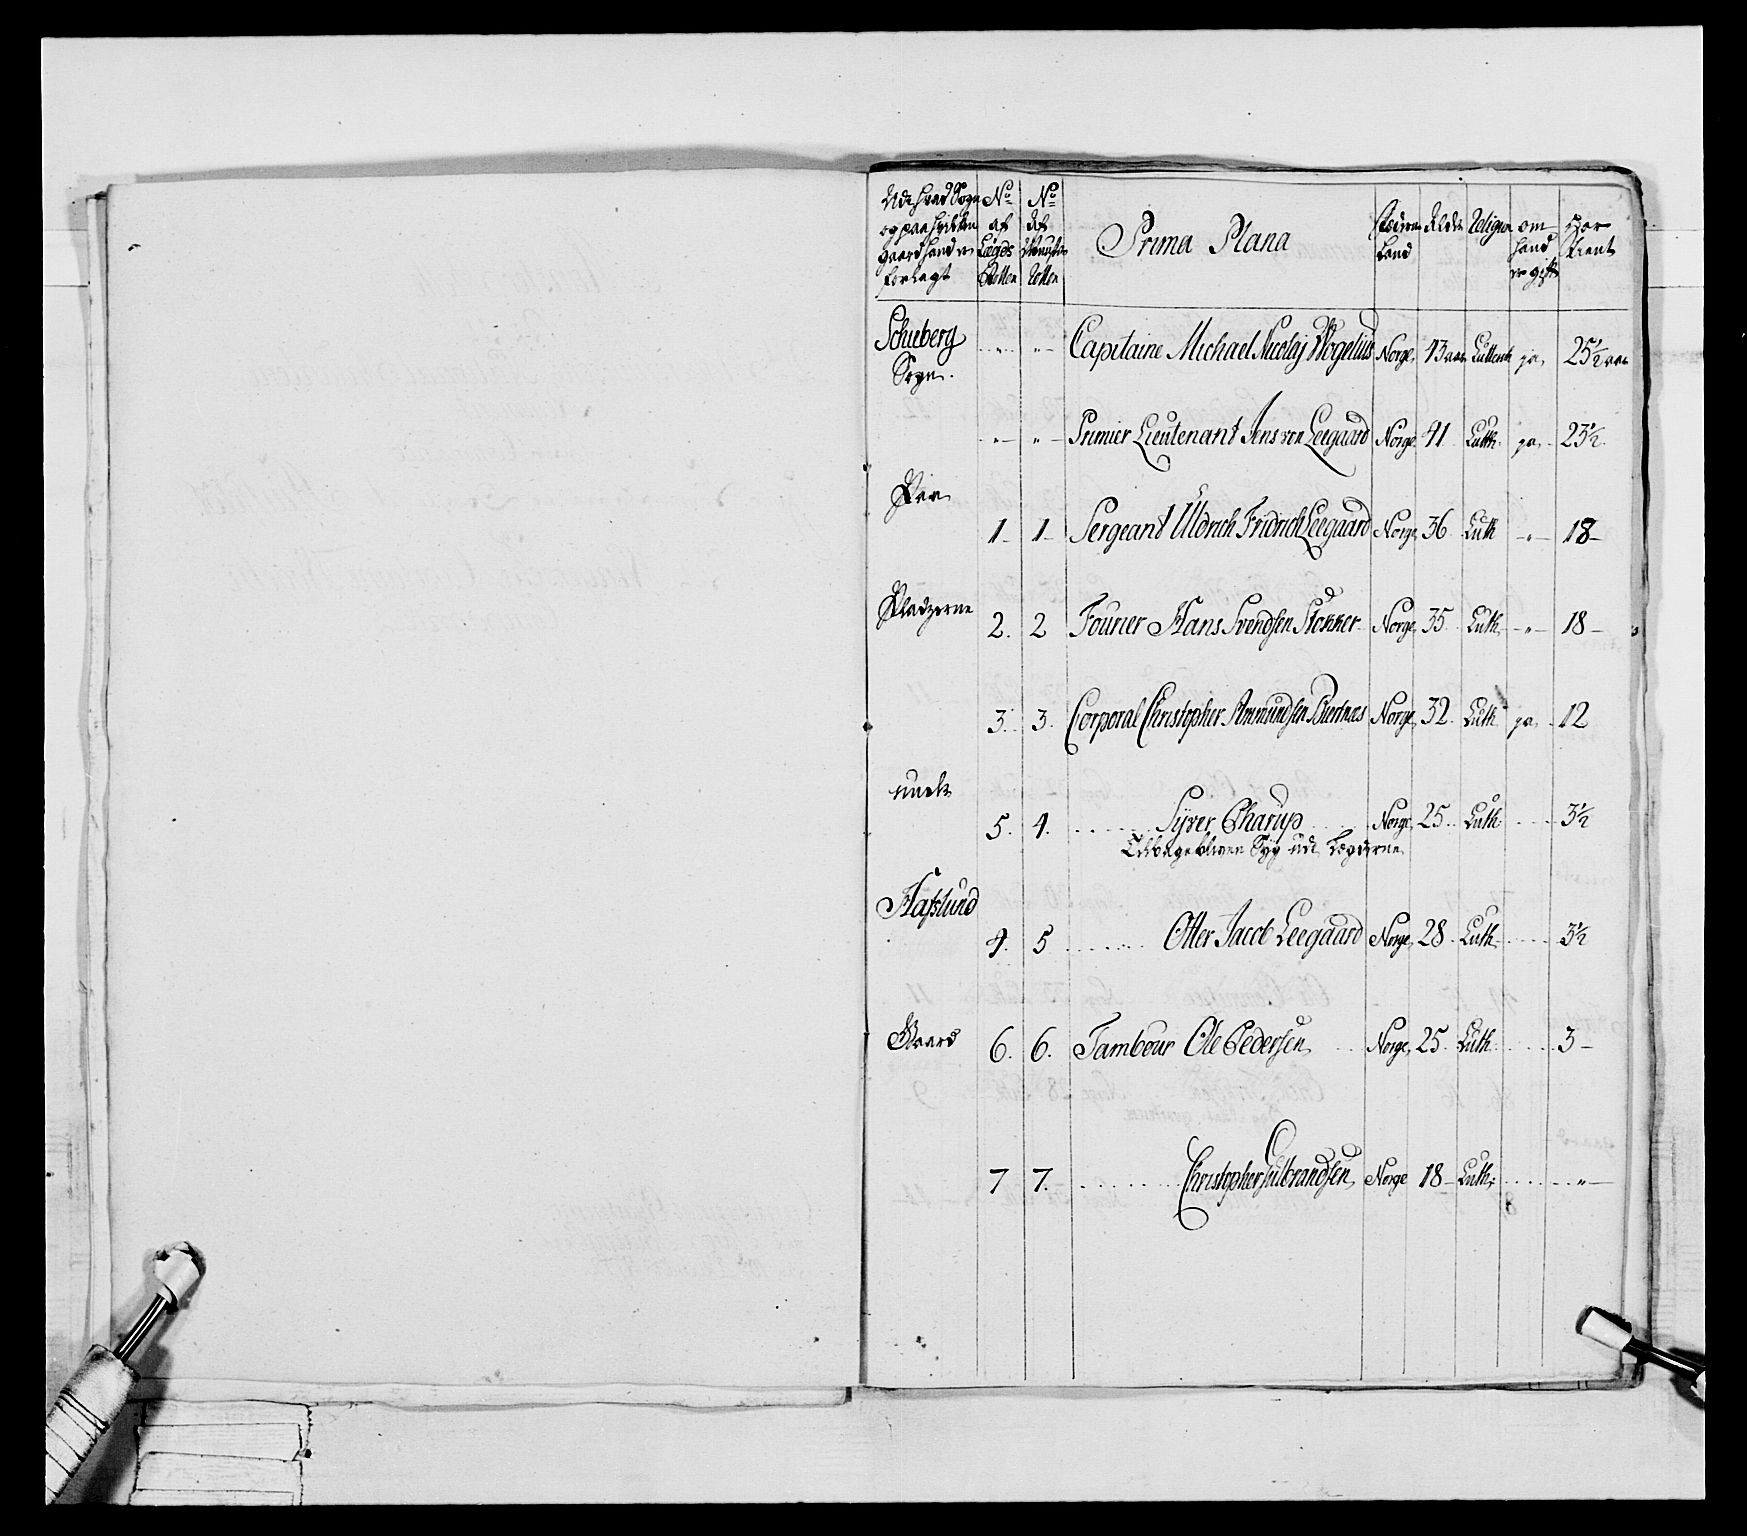 Udi hvad Sogn og paa hvilken gaard hand er forlagt | No af Lægds Rollen | No af Mynster Rollen | Prima Plana | Fæderne Land | Alder | Religion | om hand er gift | Har tient
Schieberg Sogn. | " | " | Capitaine Michael Nicolaj Wogelius | Norge | 43 aar | Luthersk | ja | 25½ aar
" | " | Premier Lieutenant Jens von Leegaard | Norge | 41 | Luth | ja | 23½
Paa
1 | 1 | Sergeant Uldrich Fridrich Leegaard | Norge | 36 | Luth | " | 18
Pladzerne
2. | 2 | Fourier Hans Svendsen Stokker | Norge | 35 | Luth | " | 18
3. | 3. | Corporal Christopher Ammundsen Biertnæs | Norge | 32 | Luth | ja | 12
under
5. | 4. | Syver Charup | Norge | 25 | Luth | 3½
Tilbagebleven Syg udi Lægderne
Hafslund
4. | 5 | Otter Jacob Leegaard | Norge | 28 | Luth | 3½
Gaard
6. | 6. | Tambour Ole Pedersen | Norge | 25 | Luth | 3
7 | 7. | Christopher Gulbrandsen | Norge | 18 | Luth: | "